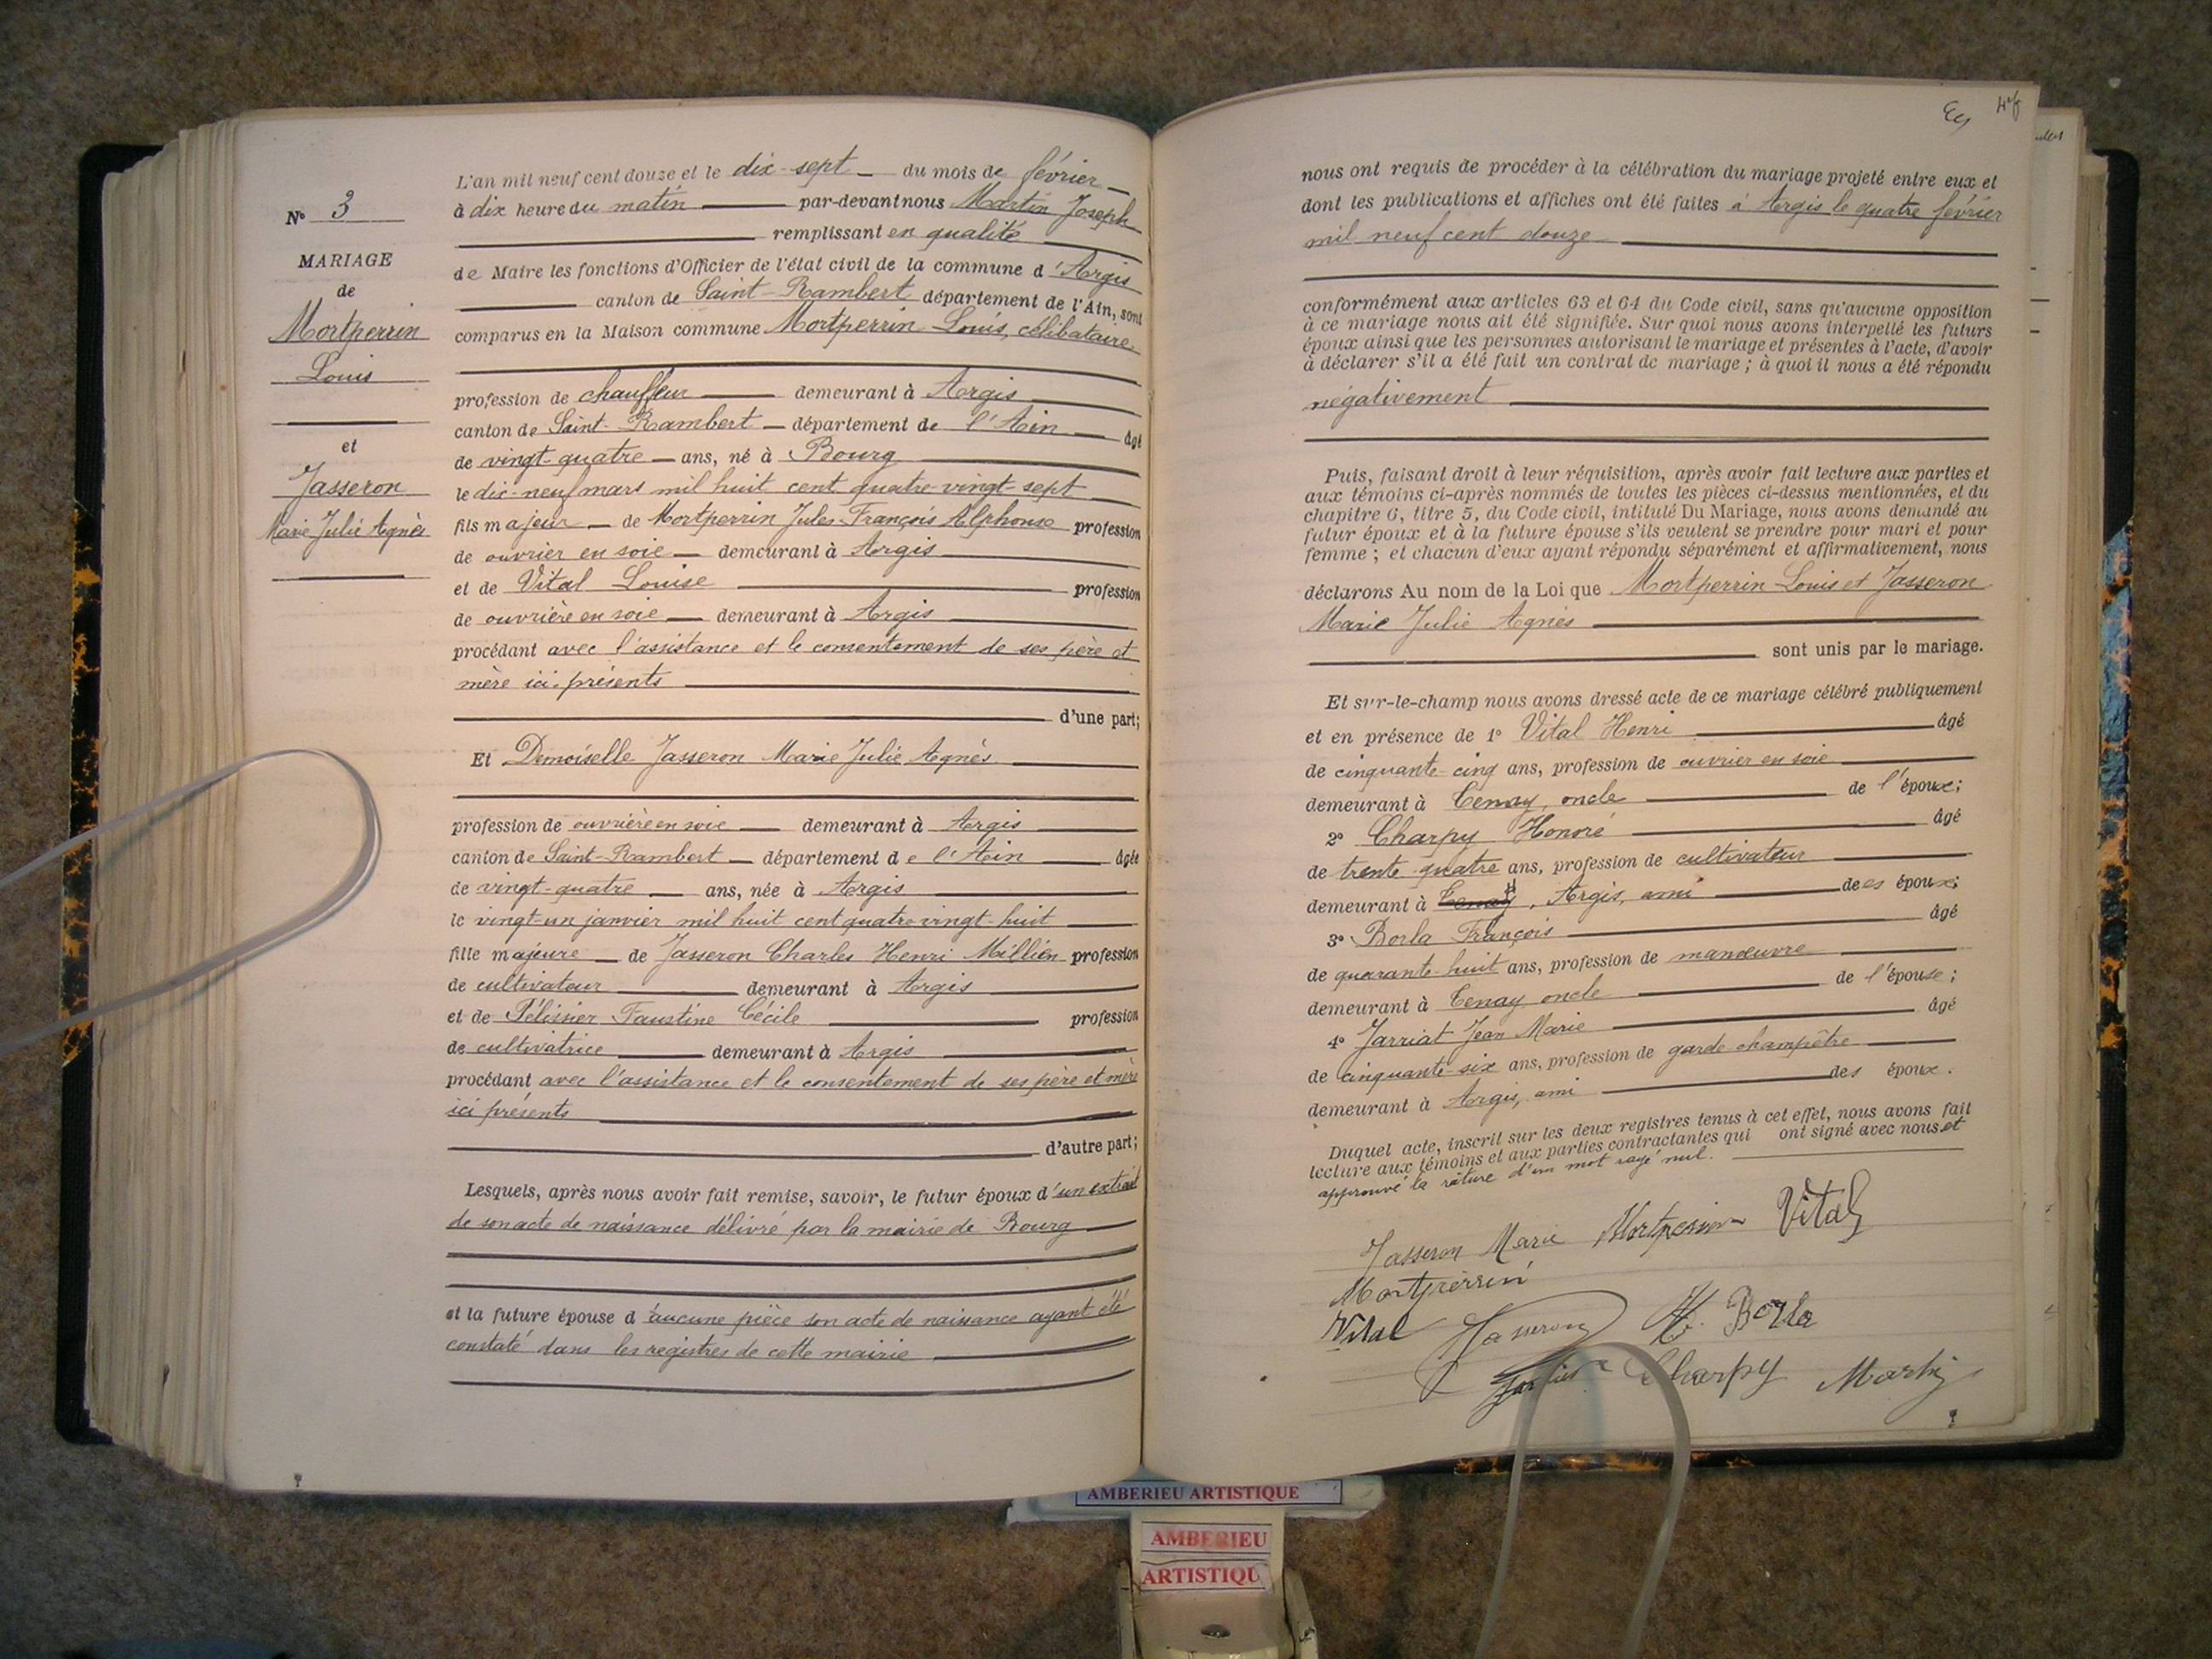 N° 3
MARIAGE
de
Mortperrin
Louis
et
Jasseron
Marie Julie Agnès
L'an mil neuf cent douze et le dix-sept du mois de février
à dix heure du matin par-devant nous Martin Joseph
remplissant en qualité
de Maire les fonctions d'Officier de l'état civil de la commune d'Argis
canton de Saint-Rambert département de l'Ain, sont
comparus en la Maison commune Mortperrin Louis, célibataire
profession de chauffeur demeurant à Argis
canton de Saint-Rambert département de l'Ain âgé
de vingt-quatre ans, né à Bourg
le dix-neuf mars mil huit cent quatre-vingt-sept
fils majeur de Mortperrin Jules-François Alphonse profession
de ouvrier en soie demeurant à Argis
et de Vital Louise profession
de ouvrière en soie demeurant à Argis
procédant avec l'assistance et le consentement de ses père et
mère ici présents
d'une part;
Et Demoiselle Jasseron Marie Julie Agnès
profession de ouvrière en soie demeurant à Argis
canton de Saint-Rambert département de l'Ain âgée
de vingt-quatre ans, née à Argis
le vingt-un janvier mil huit cent quatre-vingt-huit
fille majeure de Jasseron Charles Henri Millien profession
de cultivateur demeurant à Argis
et de Pélissier Faustine Cécile profession
de cultivatrice demeurant à Argis
procédant avec l'assistance et le consentement de ses père et mère
ici présents
d'autre part;
Lesquels, après nous avoir fait remise, savoir, le futur époux d'un extrait
de son acte de naissance délivré par la mairie de Bourg
et la future épouse d'aucune pièce son acte de naissance ayant été
constaté dans les registres de cette mairie
nous ont requis de procéder à la célébration du mariage projeté entre eux et
dont les publications et affiches ont été faites à Argis le quatre février
mil neuf cent douze
conformément aux articles 63 et 64 du Code civil, sans qu'aucune opposition
à ce mariage nous ait été signifiée. Sur quoi nous avons interpellé les futurs
époux ainsi que les personnes autorisant le mariage et présentes à l'acte, d'avoir
à déclarer s'il a été fait un contrat de mariage ; à quoi il nous a été répondu
négativement
Puis, faisant droit à leur réquisition, après avoir fait lecture aux parties et
aux témoins ci-après nommés de toutes les pièces ci-dessus mentionnées, et du
chapitre 6, titre 5, du Code civil, intitulé Du Mariage, nous avons demandé au
futur époux et à la future épouse s'ils veulent se prendre pour mari et pour
femme ; et chacun d'eux ayant répondu séparément et affirmativement, nous
déclarons Au nom de la Loi que Mortperrin Louis et Jasseron
Marie Julie Agnès
sont unis par le mariage.
Et sur-le-champ nous avons dressé acte de ce mariage célébré publiquement
et en présence de 1° Vital Henri âgé
de cinquante-cinq ans, profession de ouvrier en soie
demeurant à Tenay, oncle de l'époux;
2° Charpy Honoré âgé
de trente-quatre ans, profession de cultivateur
demeurant à Tenay, Argis, ami des époux;
3° Borla François âgé
de quarante-huit ans, profession de manœuvre
demeurant à Tenay oncle de l'épouse;
4° Jarriat Jean Marie âgé
de cinquante-six ans, profession de garde champêtre
demeurant à Argis, ami des époux.
Duquel acte, inscrit sur les deux registres tenus à cet effet, nous avons fait
lecture aux témoins et aux parties contractantes qui ont signé avec nous et
approuvé la rature d'un mot rayé nul.
Jasseron Marie Mortperrin Vital
Mortperrin
Vital Jasseron Borla
Jarriat Charpy Martin
AMBERIEU ARTISTIQUE
AMBERIEU
ARTISTIQU